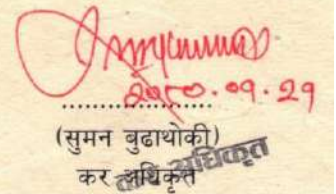 २०८०.०९.२१
(सुमन बुढाथोकी)
कर अधिकृत
अधिकृत